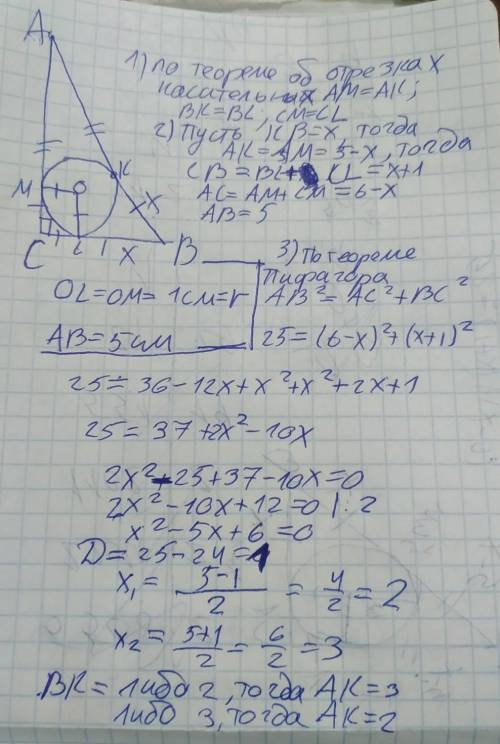 A
1) по теореме об отрезках
касательных AM=AK;
BK=BL; CM=CL
2) Пусть KB=x, тогда
AK=AM=5-x, тогда
CB=BL+CL=x+1
AC=AM+CM=6-x
AB=5
K
M
O
x
C
L
1
x
B
OL=OM=1см=r
AB=5см
3) По теореме
Пифагора
AB²=AC²+BC²
25=(6-x)²+(x+1)²
25=36-12x+x²+x²+2x+1
25=37+2x²-10x
2x²-25+37-10x=0
2x²-10x+12=0 |:2
x²-5x+6=0
D=25-24=1
x₁=(5-1)/2=4/2=2
x₂=(5+1)/2=6/2=3
BK=либо 2, тогда AK=3
либо 3, тогда AK=2